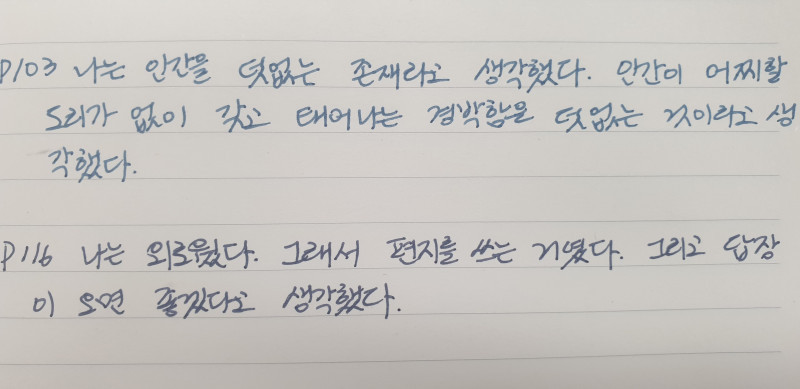 P103 나는 인간을 덧없는 존재라고 생각했다. 인간이 어찌할
도리가 없이 갖고 태어나는 경박함을 덧없는 것이라고 생
각했다.
P116 나는 외로웠다. 그래서 편지를 쓰는 거였다. 그리고 답장
이 오면 좋겠다고 생각했다.